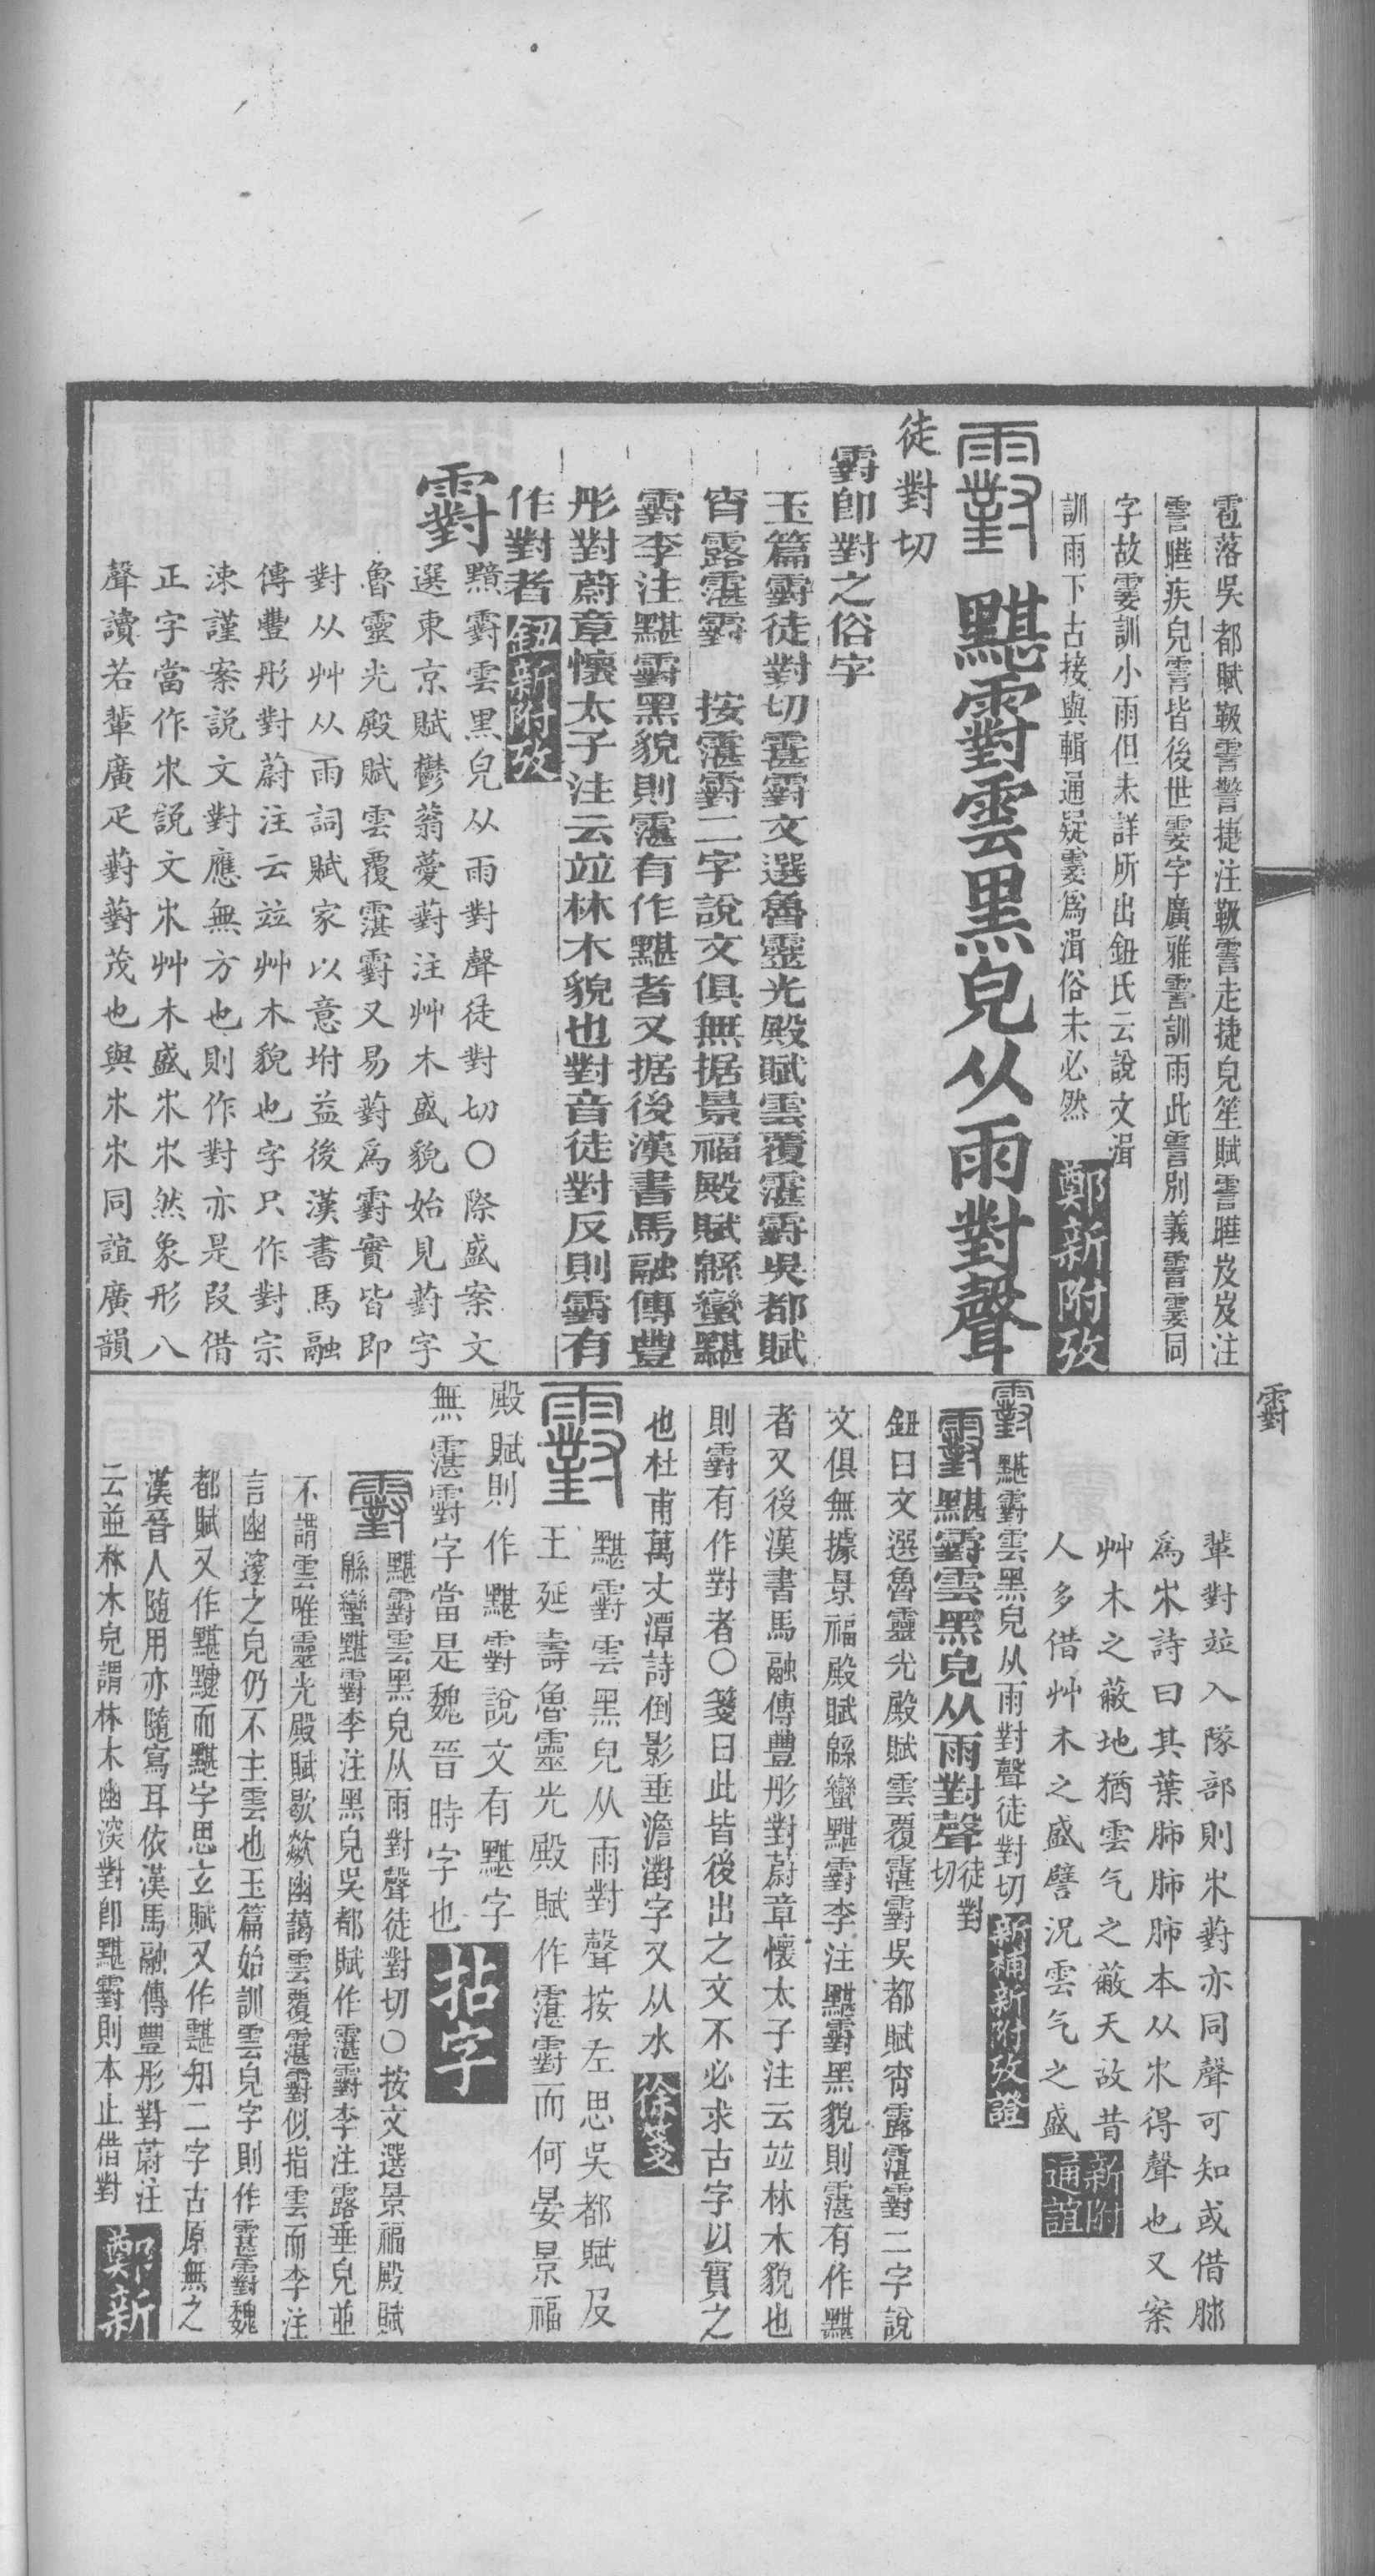 雹落吳都賦靸霅警捷注靸霅走捷皃笙賦霅曄岌岌注
霅曄疾皃霅皆後世霎字廣雅霅訓雨此霅別義霅霎同
字故霎訓小雨但未詳所出鈕氏云說文湒
訓雨下古接與輯通疑霎爲湒俗未必然
鄭新附攷
䨴 黮䨴雲黑皃从雨對聲
徒對切
䨴卽對之俗字
玉篇䨴徒對切霮䨴文選魯靈光殿賦雲覆霮䨴吳都賦
宵露霮䨴 按霮䨴二字說文俱無据景福殿賦緜蠻黮
䨴李注黮䨴黑貌則霮有作黮者又据後漢書馬融傳豐
彤對蔚章懷太子注云竝林木貌也對音徒對反則䨴有
作對者 鈕新附攷
䨴
黮䨴雲黑皃从雨對聲徒對切○際盛案文
選東京賦鬱蓊薆薱注艸木盛貌始見薱字
魯靈光殿賦雲覆霮䨴又易薱爲䨴實皆即
對从艸从雨詞賦家以意坿益後漢書馬融
傳豐彤對蔚注云竝艸木貌也字只作對宗
涑謹案說文對應無方也則作對亦是叚借
正字當作𣎵說文𣎵艸木盛𣎵𣎵然象形八
聲讀若輩廣疋薱薱茂也與𣎵𣎵同誼廣韻
䨴
輩對竝入隊部則𣎵薱亦同聲可知或借㭆
爲𣎵詩曰其葉肺肺肺本从𣎵得聲也又案
艸木之蔽地猶雲气之蔽天故昔
人多借艸木之盛譬況雲气之盛
新附通誼
䨴 黮䨴雲黑皃从雨對聲徒對切 新補新附攷證
䨴 黮䨴雲黑皃从雨對聲徒對切
鈕曰文選魯靈光殿賦雲覆霮䨴吳都賦宵露霮䨴二字說
文俱無據景福殿賦緜蠻黮䨴李注黮䨴黑貌則霮有作黮
者又後漢書馬融傳豐彤對蔚章懷太子注云竝林木貌也
則䨴有作對者○箋曰此皆後出之文不必求古字以實之
也杜甫萬丈潭詩倒影垂澹濧字又从水 徐箋
䨴
黮䨴雲黑皃从雨對聲按左思吳都賦及
王延壽魯靈光殿賦作霮䨴而何晏景福
殿賦則作黮䨴說文有黮字
無霮䨴字當是魏晉時字也 拈字
䨴
黮䨴雲黑皃从雨對聲徒對切○按文選景福殿賦
緜蠻黮䨴李注黑皃吳都賦作霮䨴李注露垂皃並
不謂雲唯靈光殿賦歇歘幽藹雲覆霮䨴似指雲而李注
言幽邃之皃仍不主雲也玉篇始訓雲皃字則作霮䨴魏
都賦又作黮䨴而黮字思玄賦又作黮知二字古原無之
漢晉人随用亦隨寫耳依漢馬融傳豐彤對蔚注
云並林木皃謂林木幽深對卽黮䨴則本止借對
鄭新